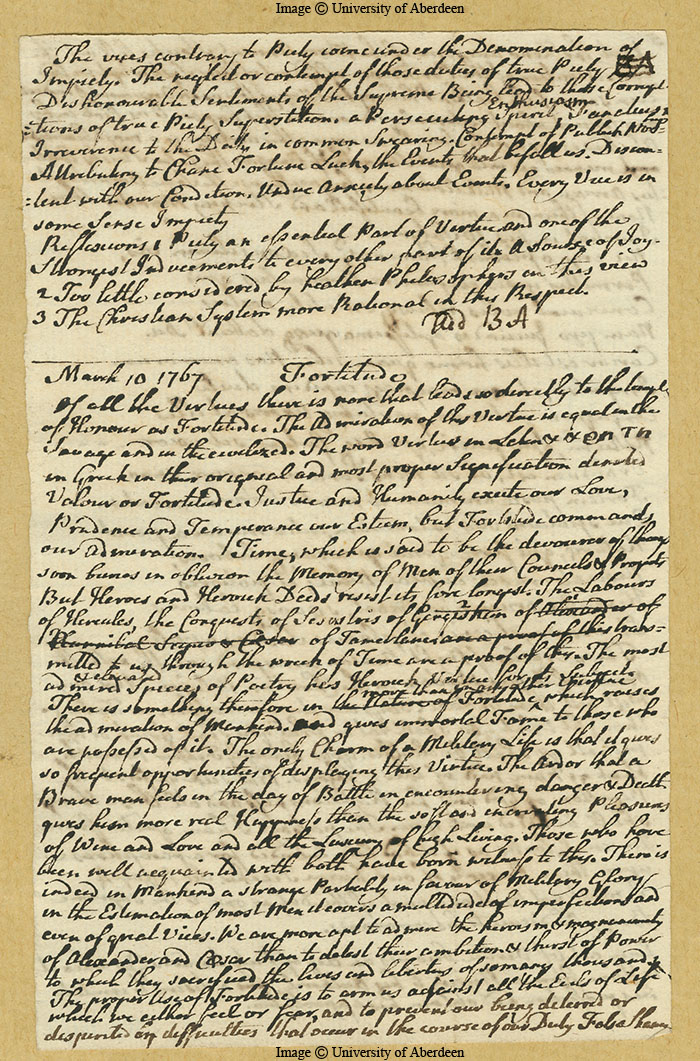 Image © University of Aberdeen
The vices contrary to Piety come under the Denomination of
Impiety. The neglect or contempt of those duties of true Piety
Dishonourable Sentiments of the Supreme Being lead to these Corrup-
Enthusiasm
-tions of true Piety Superstition. a Persecuting Spirit, Fanaticis
Irreverence to the Deity in common Swearing. Contempt of Publick
Attributing to Chance Fortune Luck, the Events that befall us. Discon-
-tent with our Condition. Undue Anxiety about Events. Every Vice is in
some Sense Impiety
Reflexions 1 Piety an essential Part of Virtue and one of the
strongest Inducements to every other part of it. A Source of Joy.
2 Too little considered by heathen Philosophers in this view
3 The Christian System more Rational in this Respect.
March 10 1767 Fortitude
Of all the Virtues there is none that leads so directly to the temple
of Honour as Fortitude. The Admiration of this Virtue is equal in the
Savage and in the civilized. The word Virtus in Latin &
in Greek in their original and most proper Signification denoted
Valour or Fortitude. Justice and Humanity excite our Love,
Prudence and Temperance our Esteem, but Fortitude commands
our admiration. Time, which is said to be the devourer of things
soon buries in oblivion the Memory of Men of their Councils & Projects
But Heroes and Heroick Deeds resist its force longest. The Labours
of Hercules, the Conquests of Sesostris of of Alexander of
Hannibal Scipio & Cesar of Tamerlane are a proof of this trans-
mitted to us through the wreck of Time are a proof of this. The most
& elevated
admired Species of Poetry has Heroick Virtue for its Subject.
more than any other
There is something therefore in the Nature of Fortitude which raises
the admiration of Mankind. and gives immortal Fame to those who
are possessed of it. The only Charm of a Military Life is that it gives
so frequent opportunities of displaying this Virtue. The Ardor that a
Brave man feels in the day of Battle in encountering danger & Death
gives him more real Happiness than the soft and Pleasures
of Wine and Love and all the Luxury of high Living. Those who have
been well acquainted with both have born witness to this. There is
indeed in Mankind a strange Partiality in favour of Military Glory
in the Estimation of most Men it covers a multitude of imperfections and
even of great Vices. We are more apt to admire the heroism & magnanimity
of Alexander and Cæsar than to detest their ambition & thirst of Power
to which they sacrificed the lives and liberties of so many thousands
The proper Use of Fortitude is to arm us against all the Evils of Life
which we either feel or fear, and to prevent our being deterred or
dispirited by difficulties that occur in the course of our Duty False
Image © University of Aberdeen